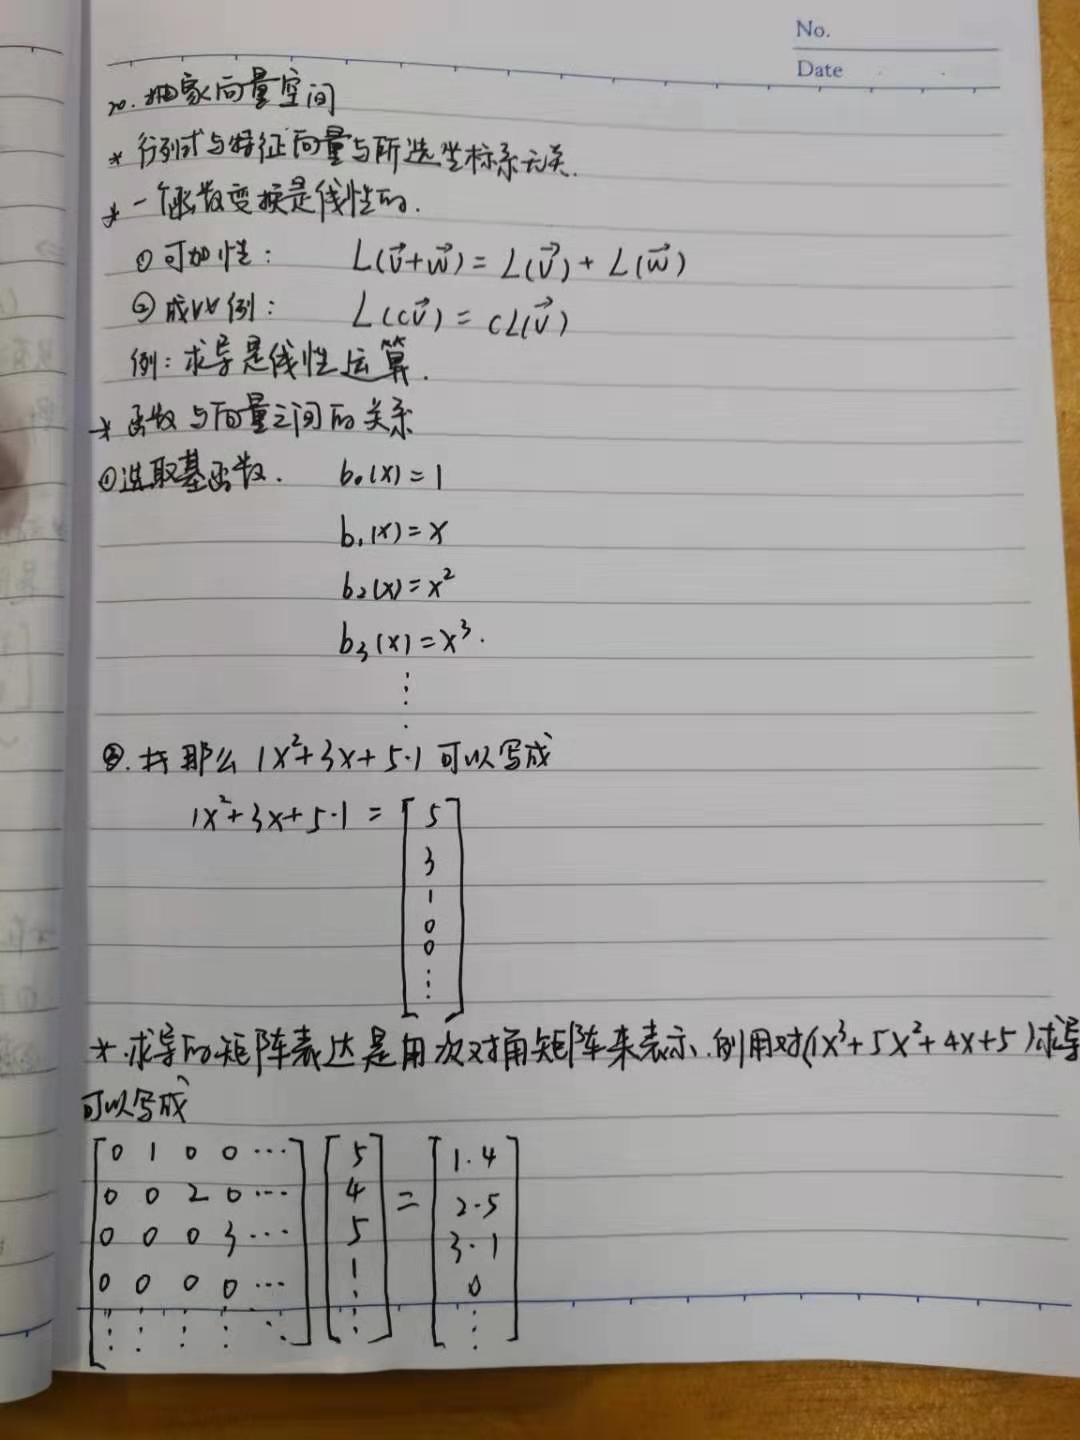 No.
Date
20. 抽象向量空间
* 行列式与特征向量与所选坐标系无关.
* 一个函数变换是线性的.
① 可加性: L(v⃗+w⃗) = L(v⃗) + L(w⃗)
② 成比例: L(cv⃗) = cL(v⃗)
例: 求导是线性运算.
* 函数与向量之间的关系
①选取基函数. b₀(x) = 1
b₁(x) = x
b₂(x) = x²
b₃(x) = x³.
⋮
②. 那么 1x²+3x+5·1 可以写成
1x²+3x+5·1 = [5
3
1
0
0
⋮]
* 求导的矩阵表达是用次对角矩阵来表示. 例用对(1x³+5x²+4x+5)求导
可以写成
[0 1 0 0 ⋯] [5] = [1·4]
[0 0 2 0 ⋯] [4] [2·5]
[0 0 0 3 ⋯] [5] [3·1]
[0 0 0 0 ⋯] [1] [0]
[⋮ ⋮ ⋮ ⋮ ⋱] [⋮] [⋮]